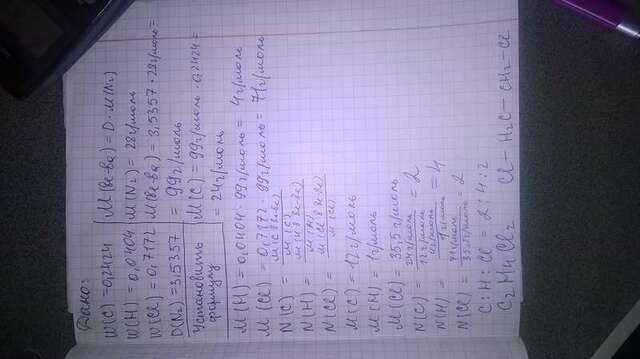 Дано:
W(C) = 0,2424
W(H) = 0,0404
W(Cl) = 0,7172
D(N₂) = 3,5357
Установить
формулу
M(в-ва) = D · M(N₂)
M(N₂) = 28 г/моль
M(в-ва) = 3,5357 · 28 г/моль =
= 99 г/моль
M(C) = 99 г/моль · 0,2424 =
= 24 г/моль
M(H) = 0,0404 · 99 г/моль = 4 г/моль
M(Cl) = 0,7172 · 99 г/моль = 71 г/моль
N(C) = M(C в в-ве) / M(C)
N(H) = M(H в в-ве) / M(H)
N(Cl) = M(Cl в в-ве) / M(Cl)
M(C) = 12 г/моль
M(H) = 1 г/моль
M(Cl) = 35,5 г/моль
N(C) = 24 г/моль / 12 г/моль = 2
N(H) = 4 г/моль / 1 г/моль = 4
N(Cl) = 71 г/моль / 35,5 г/моль = 2
C : H : Cl = 2 : 4 : 2
C₂H₄Cl₂ Cl – H₂C – CH₂ – Cl